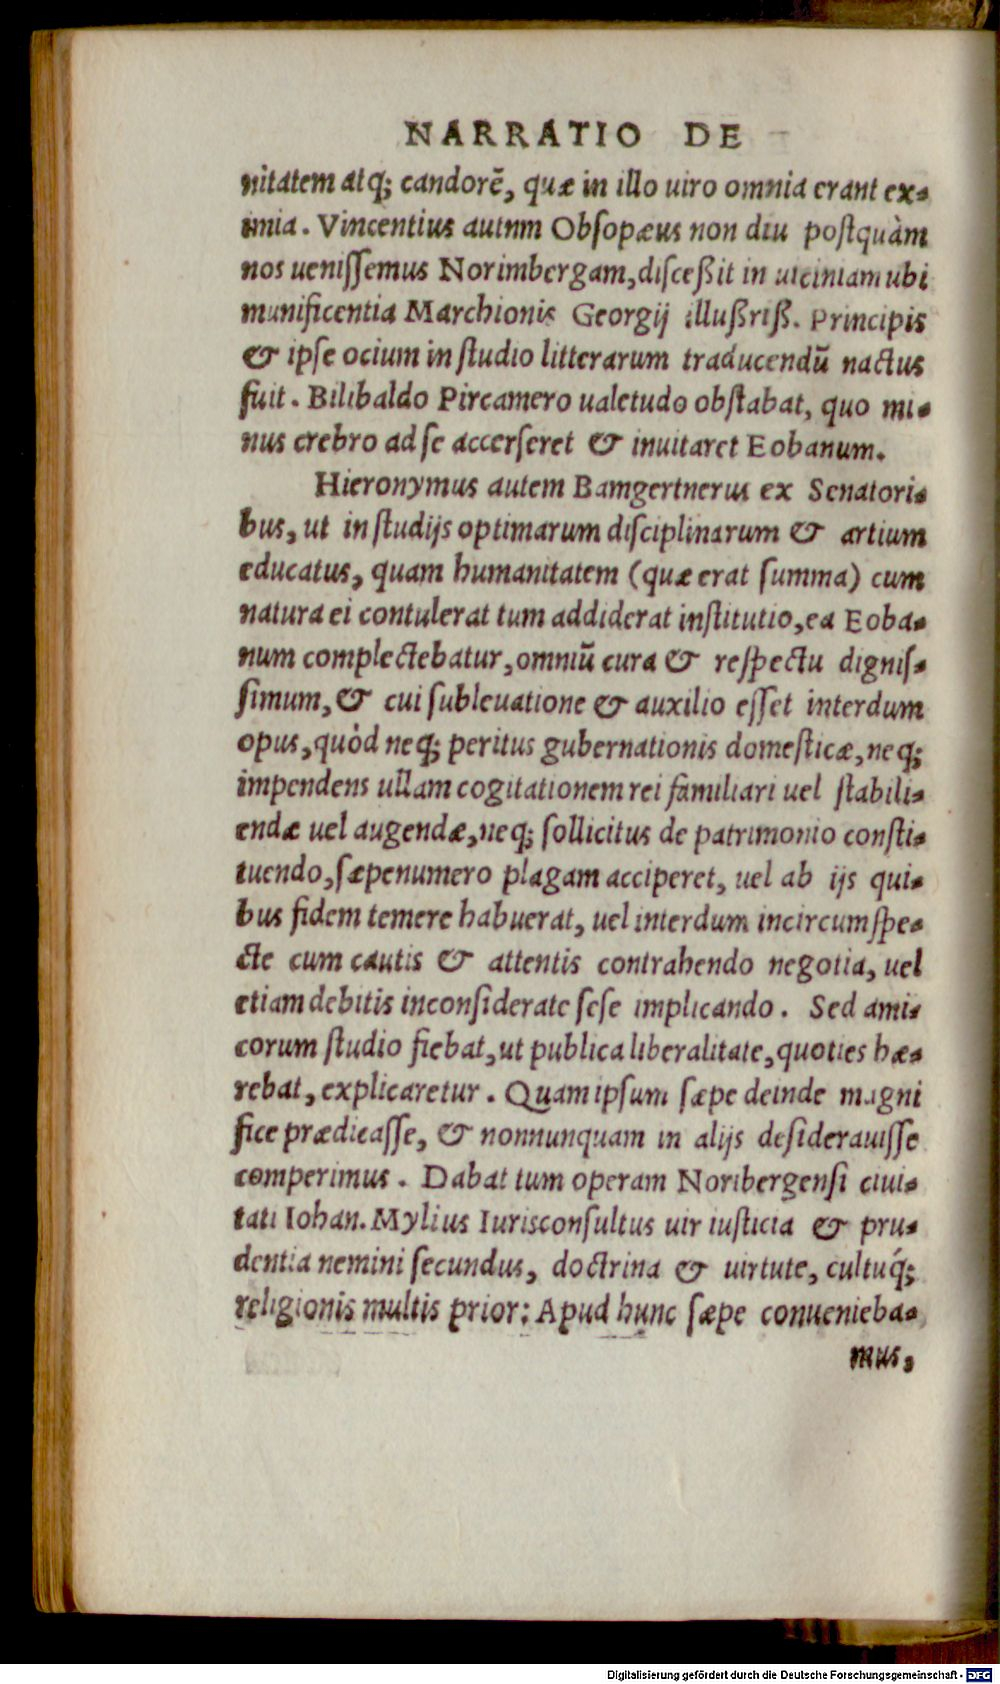 NARRATIO DE
nitatem atq; candorē, quæ in illo uiro omnia erant ex-
imia. Vincentius autnm Obſopæus non diu poſtquàm
nos ueniſſemus Norimbergam, diſceßit in uiciniam ubi
munificentia Marchionis Georgij illußriß. Principis
& ipſe ocium in ſtudio litterarum traducendū nactus
fuit. Bilibaldo Pircamero ualetudo obſtabat, quo mi-
nus crebro ad ſe accerſeret & inuitaret Eobanum.
Hieronymus autem Bamgertnerus ex Senatori-
bus, ut in ſtudijs optimarum diſciplinarum & artium
educatus, quam humanitatem (quæ erat ſumma) cum
natura ei contulerat tum addiderat inſtitutio, ea Eoba-
num complectebatur, omniū cura & reſpectu digniſ-
ſimum, & cui ſubleuatione & auxilio eſſet interdum
opus, quòd neq; peritus gubernationis domeſticæ, neq;
impendens ullam cogitationem rei familiari uel ſtabili-
endæ uel augendæ, neq; ſollicitus de patrimonio conſti-
tuendo, ſæpenumero plagam acciperet, uel ab ijs qui-
bus fidem temere habuerat, uel interdum incircumſpe-
cte cum cautis & attentis contrahendo negotia, uel
etiam debitis inconſiderate ſeſe implicando. Sed ami-
corum ſtudio fiebat, ut publica liberalitate, quoties hæ-
rebat, explicaretur. Quam ipſum ſæpe deinde magni
fice prædicaſſe, & nonnunquam in alijs deſiderauiſſe
comperimus. Dabat tum operam Noribergenſi ciui-
tati Iohan. Mylius Iurisconſultus uir iuſticia & pru-
dentia nemini ſecundus, doctrina & uirtute, cultuq́;
religionis multis prior: Apud hunc ſæpe conuenieba-
mus,
Digitalisierung gefördert durch die Deutsche Forschungsgemeinschaft - DFG